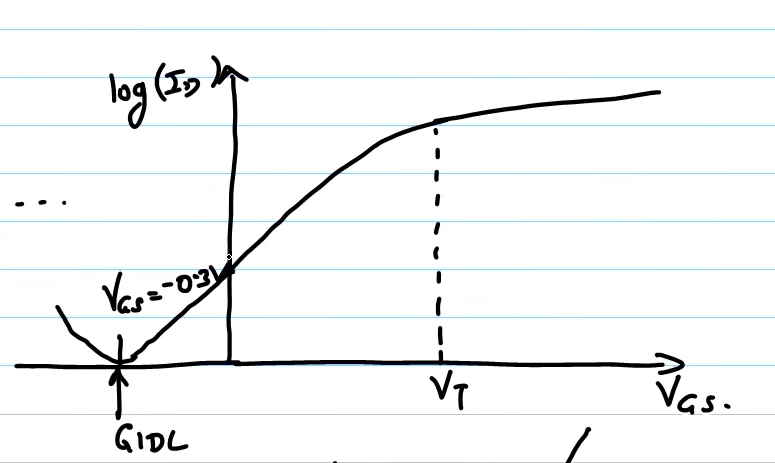 log(I_D)
...
V_GS=-0.3V
V_T
V_GS.
GIDL